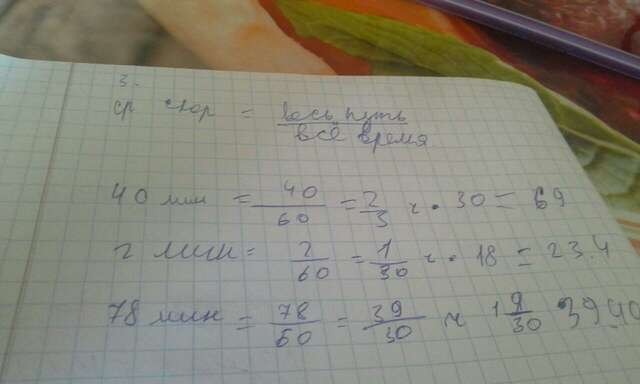 3.
ср скор = весь путь / всё время
40 мин = 40/60 = 2/3 ч • 30 = 69
2 мин = 2/60 = 1/30 ч • 18 = 23.4
78 мин = 78/60 = 39/30 ч 1 9/30 • 39.40